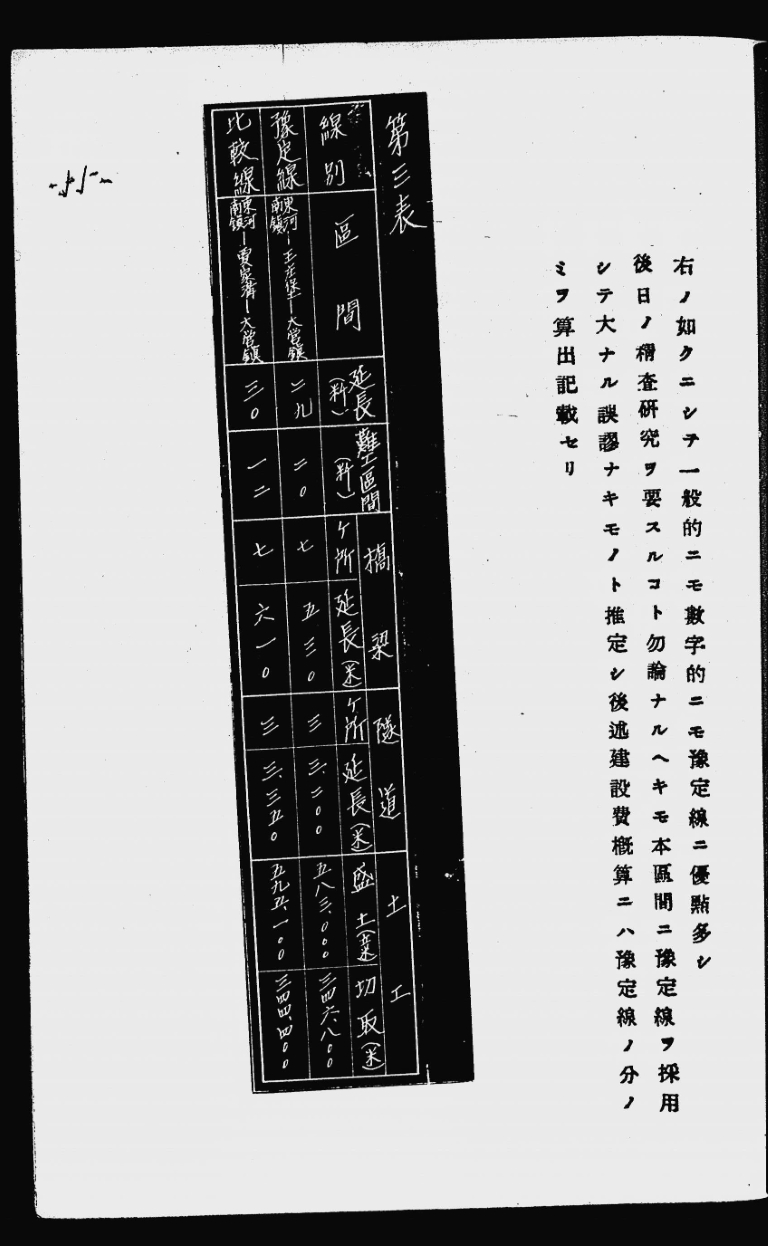 右ノ如クニシテ一般的ニモ數字的ニモ豫定線ニ優點多シ
後日ノ精査研究ヲ要スルコト勿論ナルヘキモ本區間ニ豫定線ヲ採用
シテ大ナル誤謬ナキモノト推定シ後述建設費概算ニハ豫定線ノ分ノ
ミヲ算出記載セリ
第三表
線別 區間 延長(粁) 難工區間(粁) 橋梁 ケ所 延長(米) 隧道 ケ所 延長(米) 土工 盛土(立米) 切取(米)
豫定線 東河南鎮ー王庄堡ー大營鎮 二九 二〇 七 五三〇 三 三、二〇〇 五八三、〇〇〇 三四六、八〇〇
比較線 東河南鎮ー賈家溝ー大營鎮 三〇 一二 七 六一〇 三 三、三五〇 五九五、一〇〇 三四四、四〇〇